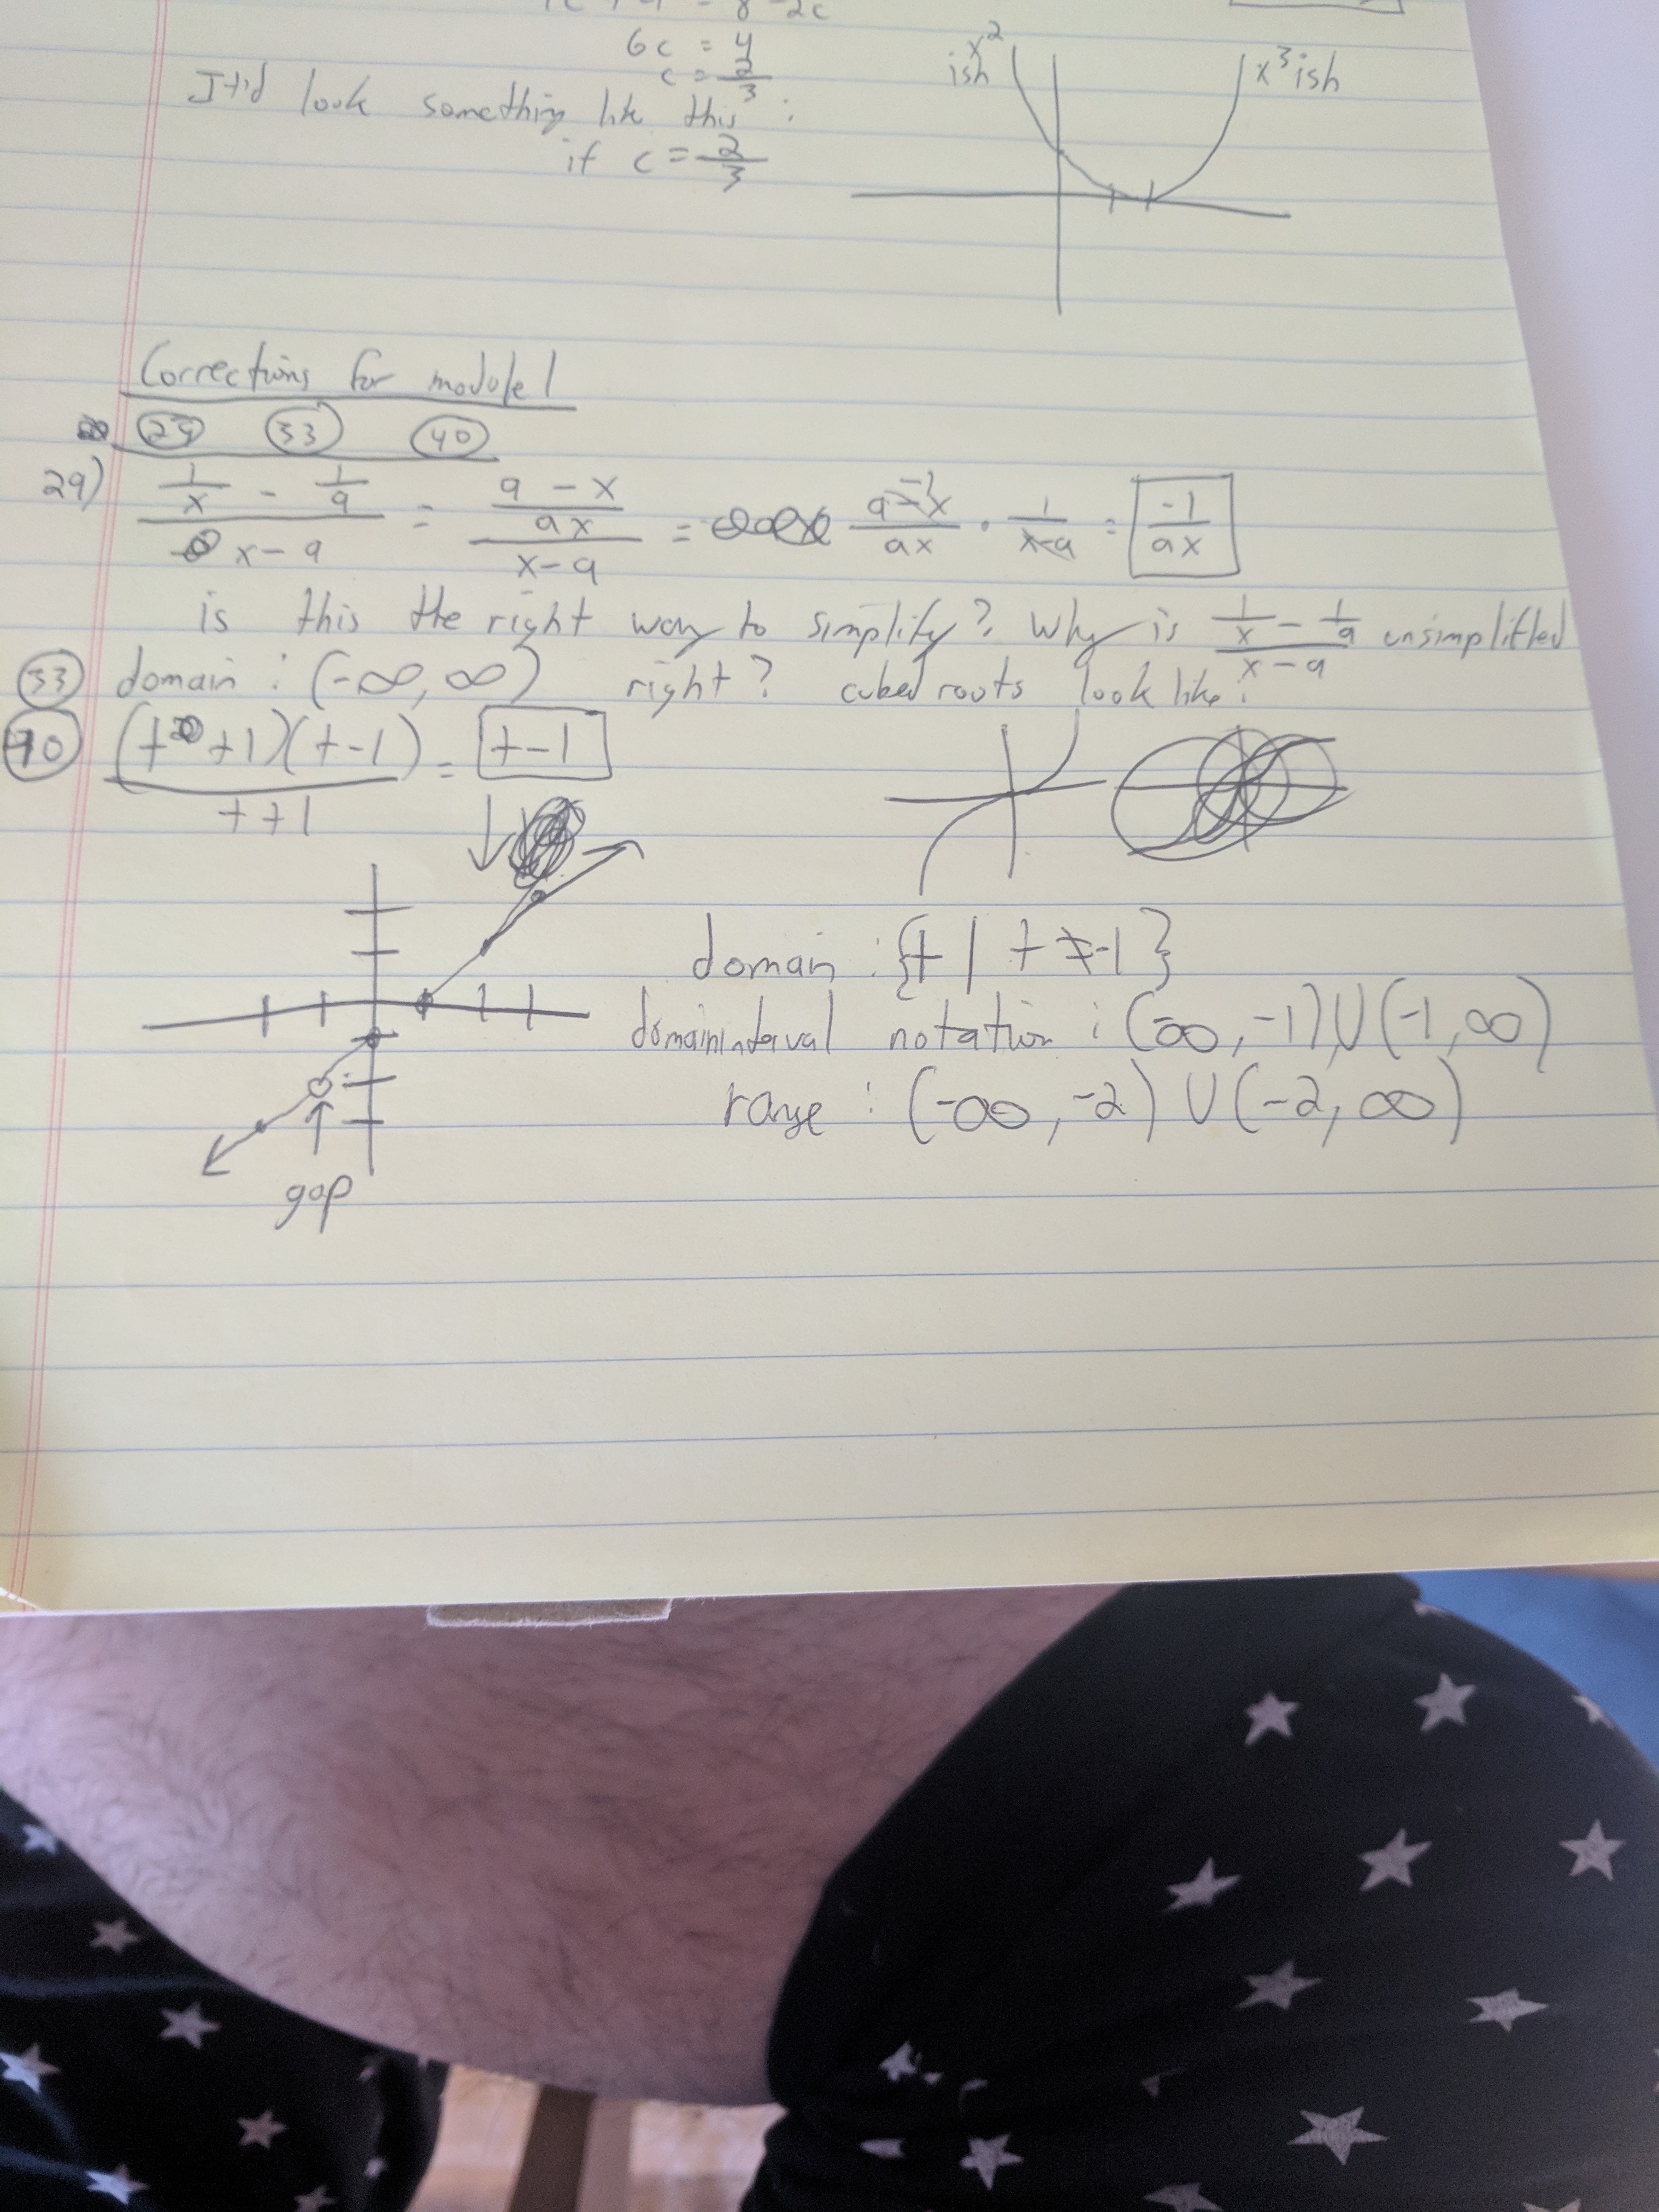 = 8 - 2c
6c = 4
c = 2/3
It'd look something like this :
if c = 2/3
x² ish
x³ ish
Corrections for module 1
29 33 40
29) (1/x - 1/a)/(x - a) = ((a - x)/(ax))/(x - a) = (a - x)/(ax) -1 · 1/(x - a) = -1/(ax)
is this the right way to simplify? Why is (1/x - 1/a)/(x - a) unsimplified
33 domain : (-∞, ∞) right? cubed roots look like?
40 (t + 1)(t - 1)/(t + 1) = t - 1
domain : {t | t ≠ -1}
domain interval notation : (-∞, -1) U (-1, ∞)
range : (-∞, -2) U (-2, ∞)
gap